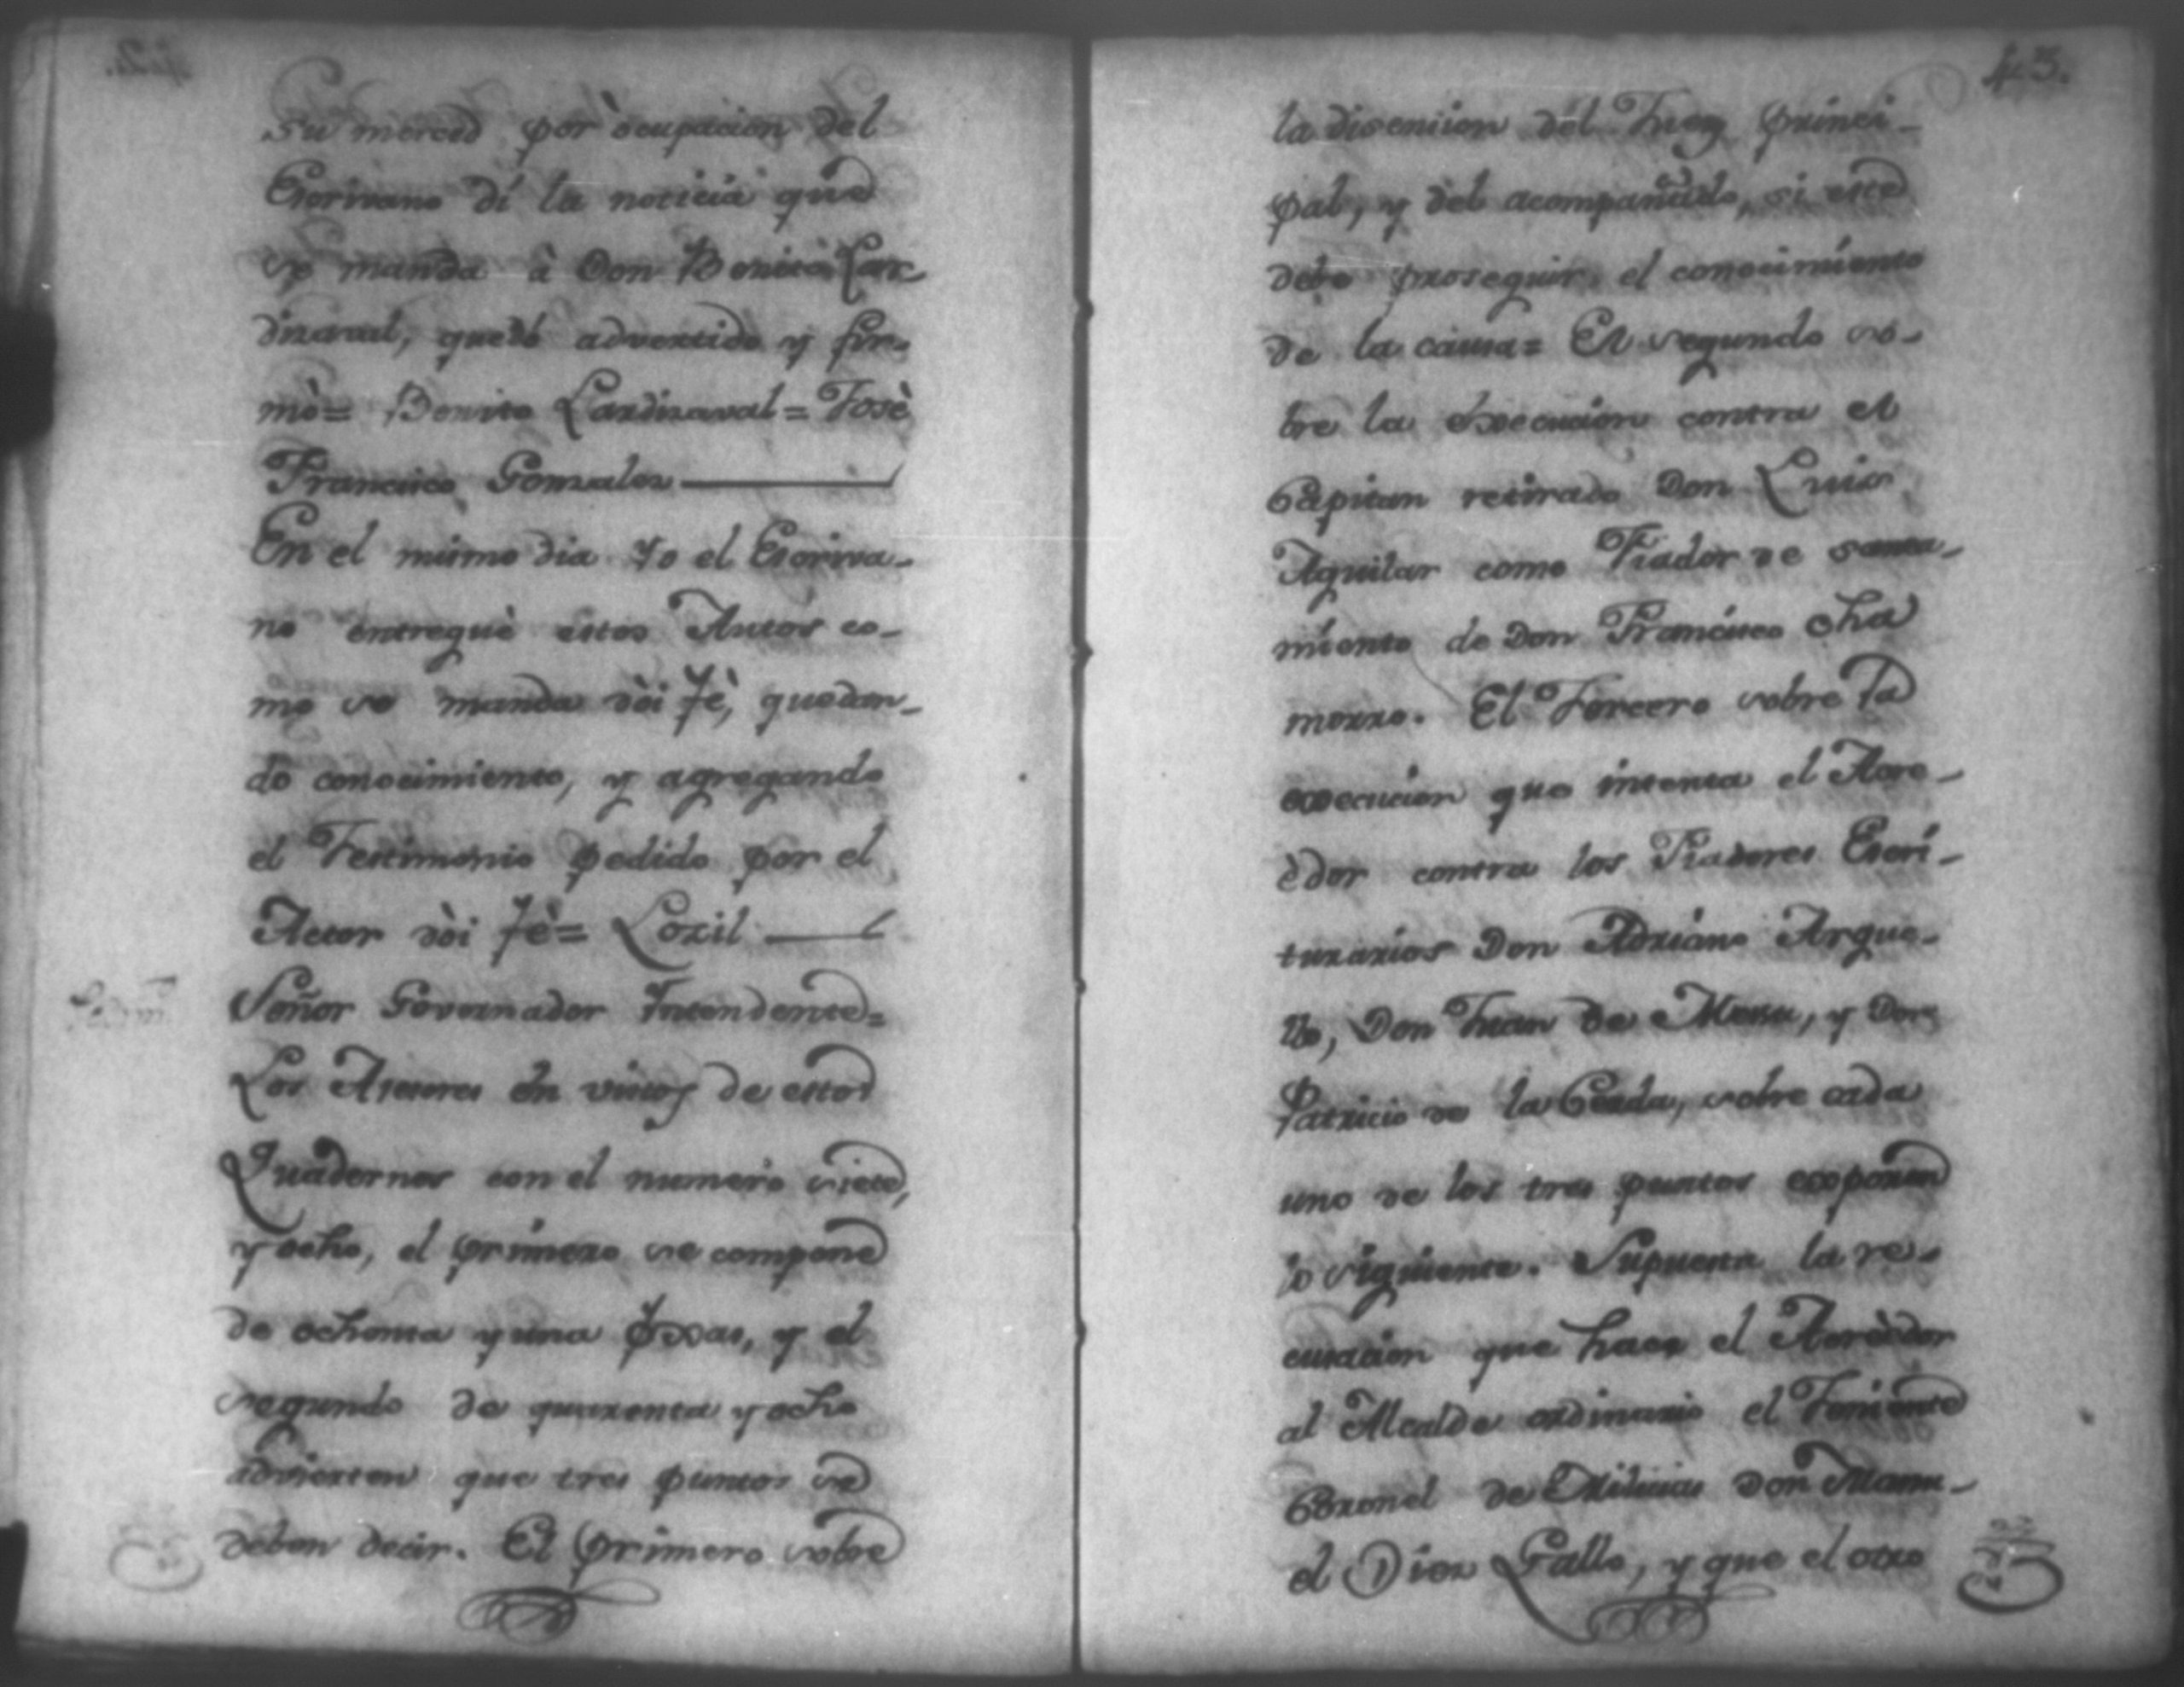 su merced por ocupacion del
Escrivano di la noticia que
se manda à Don Benito Lar
dizaval, quedò advertido y fir-
mò= Benito Lardizaval= Josè
Francisco Gonzales
En el mismo dia Yo el Escriva-
no entreguè estos Autos co-
mo se manda dòi fè, quedan-
do conocimiento, y agregando
el Testimonio pedido por el
Actor dòi fè= Loxil
Señor Governador Intendente=
Los Asesores en vista de estos
Quadernos con el numero siete,
y ocho, el primero se compone
de ochenta y una foxas, y el
segundo de quarenta y ocho
advierten que tres puntos se
deben decir. El primero sobre
43.
la discension del Juez princi-
pal, y del acompañado, si este
debe proseguir el conocimiento
de la causa= El segundo so-
bre la execucion contra el
Capitan retirado Don Luis
Aguilar como Fiador de sanea-
miento de Don Francisco Cha
morro. El Tercero sobre la
execucion que intenta el Acre-
èdor contra los Fiadores Escri-
turarios Don Adriano Argue-
llo, Don Juan de Mena, y Don
Patricio de la Cerda, sobre cada
uno de los tres puntos exponen
lo siguiente. Supuesta la re-
cusacion que hace el Acreèdor
al Alcalde ordinario el Teniente
Coronel de Milicias Don Manu-
el Diez Gallo, y que el otro